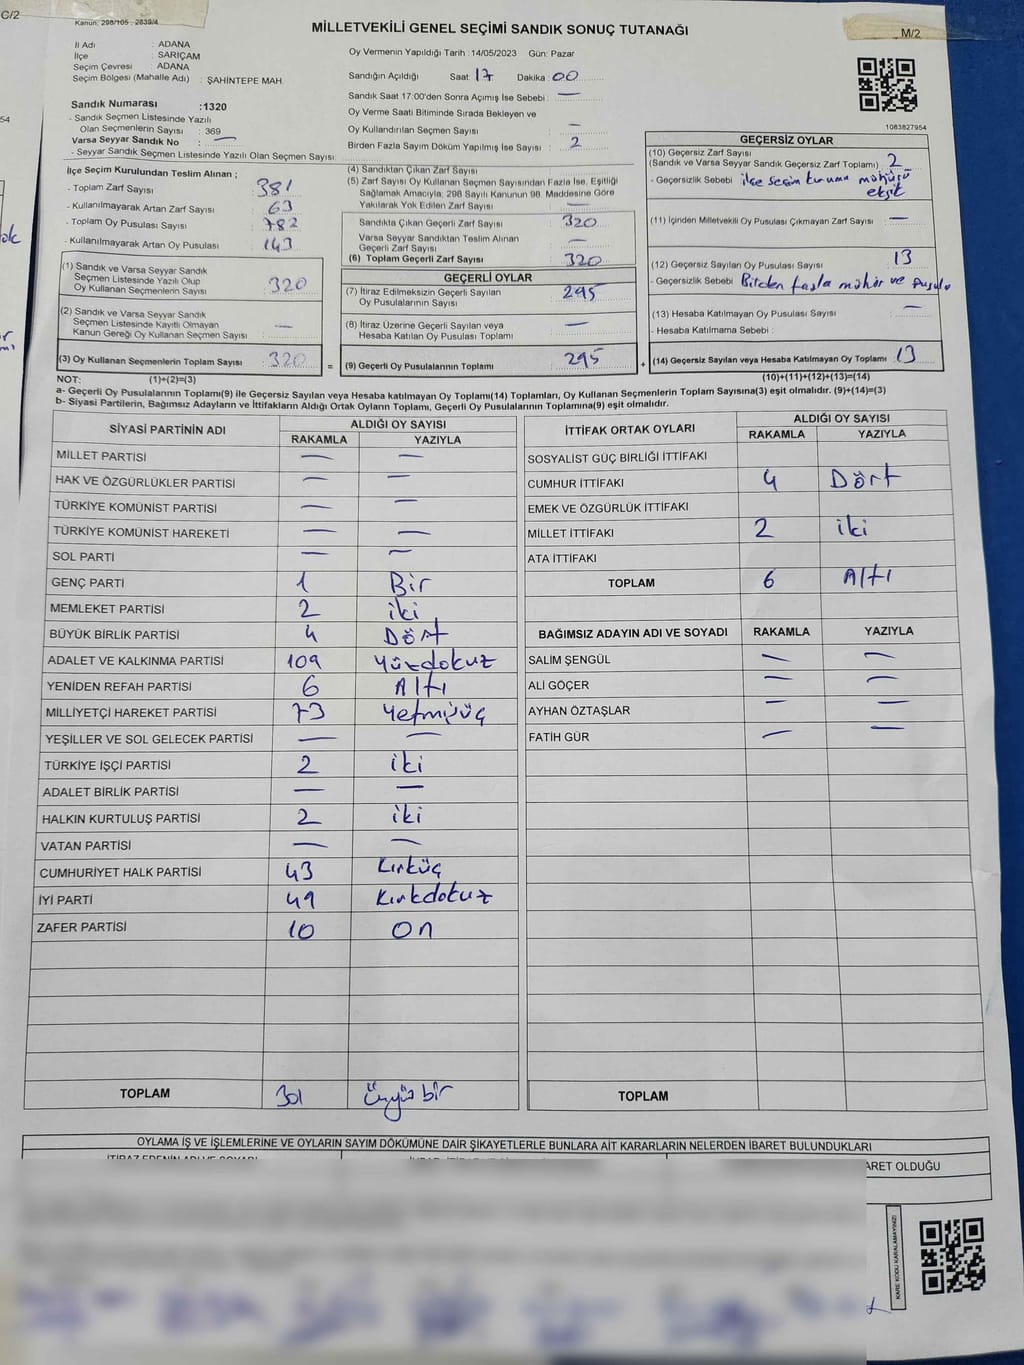 C/2
Kanun: 298/105 - 2839/4
MİLLETVEKİLİ GENEL SEÇİMİ SANDIK SONUÇ TUTANAĞI
M/2
İl Adı : ADANA
İlçe : SARIÇAM
Seçim Çevresi : ADANA
Seçim Bölgesi (Mahalle Adı) : ŞAHİNTEPE MAH.
Oy Vermenin Yapıldığı Tarih : 14/05/2023 Gün: Pazar
Sandığın Açıldığı Saat: 17 Dakika : 00
Sandık Saat 17:00'den Sonra Açımış İse Sebebi : —
Oy Verme Saati Bitiminde Sırada Bekleyen ve
Oy Kullandırılan Seçmen Sayısı : —
Birden Fazla Sayım Döküm Yapılmış İse Sayısı : 2
1083827954
Sandık Numarası :1320
- Sandık Seçmen Listesinde Yazılı
Olan Seçmenlerin Sayısı : 369
Varsa Seyyar Sandık No : —
- Seyyar Sandık Seçmen Listesinde Yazılı Olan Seçmen Sayısı:
İlçe Seçim Kurulundan Teslim Alınan ;
- Toplam Zarf Sayısı : 381
- Kullanılmayarak Artan Zarf Sayısı : 63
- Toplam Oy Pusulası Sayısı : 782
- Kullanılmayarak Artan Oy Pusulası : 143
(1) Sandık ve Varsa Seyyar Sandık
Seçmen Listesinde Yazılı Olup
Oy Kullanan Seçmenlerin Sayısı : 320
(2) Sandık ve Varsa Seyyar Sandık
Seçmen Listesinde Kayıtlı Olmayan
Kanun Gereği Oy Kullanan Seçmen Sayısı : —
(3) Oy Kullanan Seçmenlerin Toplam Sayısı : 320 =
(4) Sandıktan Çıkan Zarf Sayısı :
(5) Zarf Sayısı Oy Kullanan Seçmen Sayısından Fazla İse, Eşitliği
Sağlamak Amacıyla, 298 Sayılı Kanunun 98. Maddesine Göre
Yakılarak Yok Edilen Zarf Sayısı : —
Sandıkta Çıkan Geçerli Zarf Sayısı : 320
Varsa Seyyar Sandıktan Teslim Alınan
Geçerli Zarf Sayısı : —
(6) Toplam Geçerli Zarf Sayısı : 320
GEÇERLİ OYLAR
(7) İtiraz Edilmeksizin Geçerli Sayılan
Oy Pusulalarının Sayısı : 295
(8) İtiraz Üzerine Geçerli Sayılan veya
Hesaba Katılan Oy Pusulası Toplamı : —
(9) Geçerli Oy Pusulalarının Toplamı : 295 +
GEÇERSİZ OYLAR
(10) Geçersiz Zarf Sayısı
(Sandık ve Varsa Seyyar Sandık Geçersiz Zarf Toplamı) : 2
- Geçersizlik Sebebi : ilçe seçim kurumu mühürü
eksik
(11) İçinden Milletvekili Oy Pusulası Çıkmayan Zarf Sayısı : —
(12) Geçersiz Sayılan Oy Pusulası Sayısı : 13
- Geçersizlik Sebebi : Birden fazla mühür ve pusula
(13) Hesaba Katılmayan Oy Pusulası Sayısı : —
- Hesaba Katılmama Sebebi :
(14) Geçersiz Sayılan veya Hesaba Katılmayan Oy Toplamı : 13
NOT: (1)+(2)=(3) (10)+(11)+(12)+(13)=(14)
a- Geçerli Oy Pusulalarının Toplamı(9) ile Geçersiz Sayılan veya Hesaba katılmayan Oy Toplamı(14) Toplamları, Oy Kullanan Seçmenlerin Toplam Sayısına(3) eşit olmalıdır. (9)+(14)=(3)
b- Siyasi Partilerin, Bağımsız Adayların ve İttifakların Aldığı Ortak Oyların Toplamı, Geçerli Oy Pusulalarının Toplamına(9) eşit olmalıdır.
SİYASİ PARTİNİN ADI ALDIĞI OY SAYISI
RAKAMLA YAZIYLA
MİLLET PARTİSİ — —
HAK VE ÖZGÜRLÜKLER PARTİSİ — —
TÜRKİYE KOMÜNİST PARTİSİ — —
TÜRKİYE KOMÜNİST HAREKETİ — —
SOL PARTİ — —
GENÇ PARTİ 1 Bir
MEMLEKET PARTİSİ 2 iki
BÜYÜK BİRLİK PARTİSİ 4 Dört
ADALET VE KALKINMA PARTİSİ 109 Yüzdokuz
YENİDEN REFAH PARTİSİ 6 Altı
MİLLİYETÇİ HAREKET PARTİSİ 73 Yetmişüç
YEŞİLLER VE SOL GELECEK PARTİSİ — —
TÜRKİYE İŞÇİ PARTİSİ 2 iki
ADALET BİRLİK PARTİSİ — —
HALKIN KURTULUŞ PARTİSİ 2 iki
VATAN PARTİSİ — —
CUMHURİYET HALK PARTİSİ 43 Kırküç
İYİ PARTİ 49 Kırkdokuz
ZAFER PARTİSİ 10 On
TOPLAM 301 Üçyüz bir
İTTİFAK ORTAK OYLARI ALDIĞI OY SAYISI
RAKAMLA YAZIYLA
SOSYALİST GÜÇ BİRLİĞİ İTTİFAKI
CUMHUR İTTİFAKI 4 Dört
EMEK VE ÖZGÜRLÜK İTTİFAKI
MİLLET İTTİFAKI 2 iki
ATA İTTİFAKI
TOPLAM 6 Altı
BAĞIMSIZ ADAYIN ADI VE SOYADI RAKAMLA YAZIYLA
SALİM ŞENGÜL — —
ALİ GÖÇER — —
AYHAN ÖZTAŞLAR — —
FATİH GÜR — —
TOPLAM
OYLAMA İŞ VE İŞLEMLERİNE VE OYLARIN SAYIM DÖKÜMÜNE DAİR ŞİKAYETLERLE BUNLARA AİT KARARLARIN NELERDEN İBARET BULUNDUKLARI
ARET OLDUĞU
KARE KODU KARALAMAYINIZ!